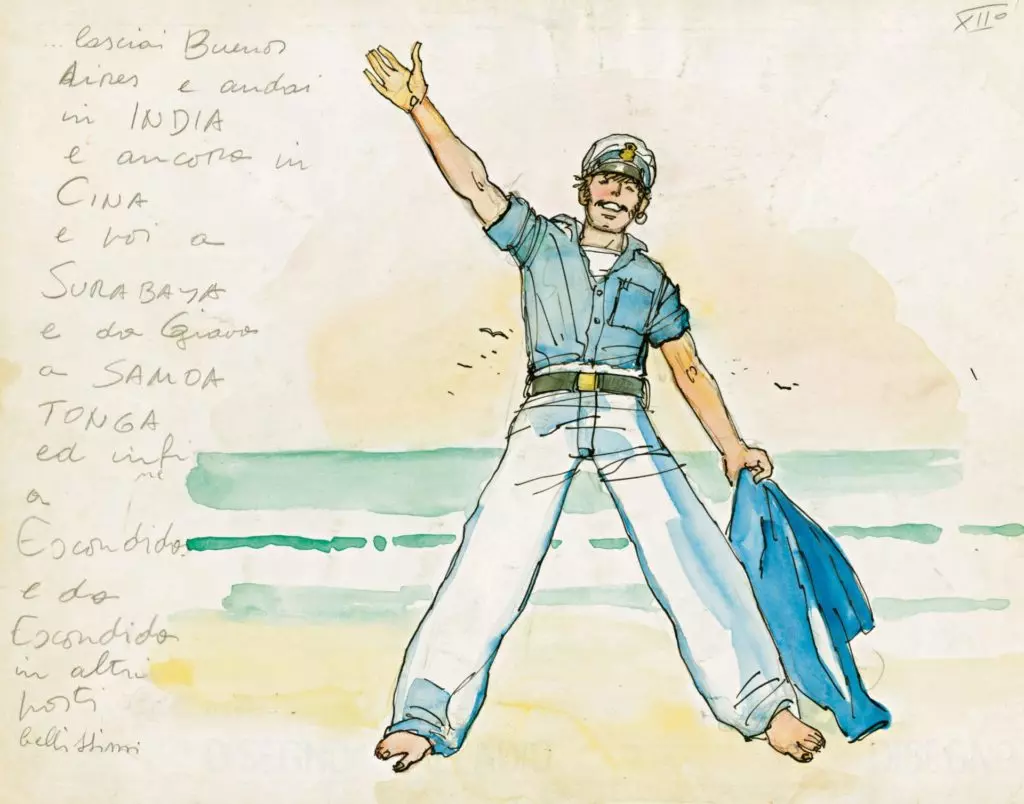 ... lasciai Buenos
Aires e andai
in INDIA
e ancora in
CINA
e poi a
SURABAYA
e da Giava
a SAMOA
TONGA
ed infi
ne
a
Escondida
e da
Escondida
in altri
posti
bellissimi
XIIº